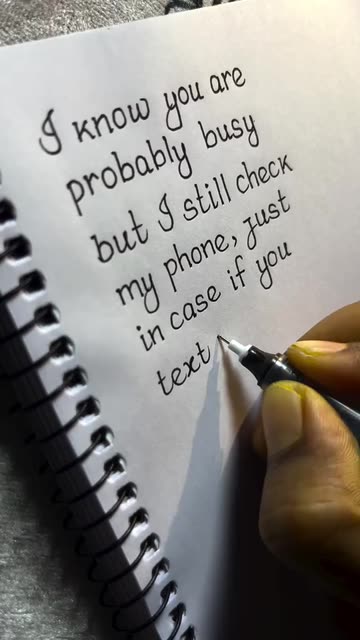 I know you are
probably busy
but I still check
my phone, just
in case if you
text